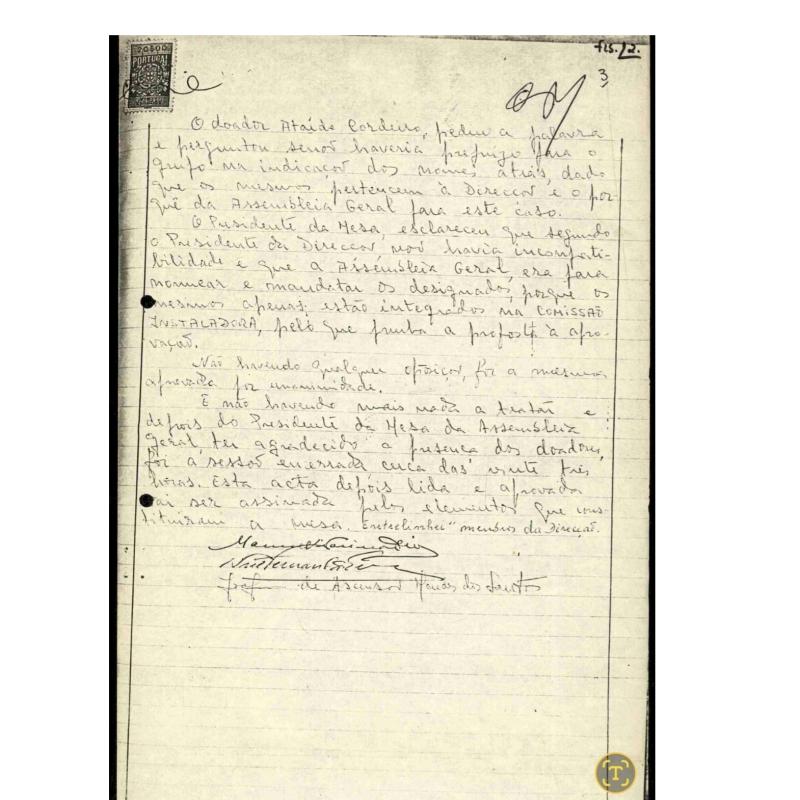 20$00
PORTUGAL
fls. 2.
3
O doador Ataíde Cordeiro, pediu a palavra
e perguntou senão haveria prejuizo para o
grupo na indicação dos nomes atrás, dado
que os mesmos pertencem à Direcção e o por
quê da Assembleia Geral para este caso.
O Presidente da Mesa, esclareceu que segundo
o Presidente da Direcção não havia incompati-
bilidade e que a Assembleia Geral, era para
nomear e mandatar os designados, porque os
mesmos apenas, estão integrados na COMISSÃO
INSTALADORA, pelo que punha a proposta à apro-
vação.
Não havendo qualquer oposição, foi a mesma
aprovada por unanimidade.
E não havendo mais nada a tratar e
depois do Presidente da Mesa da Assembleia
Geral, ter agradecido a presença dos doadores,
foi a sessão encerrada cerca das vinte três
horas. Esta acta depois lida e aprovada
vai ser assinada pelos elementos que cons-
tituiram a mesa. Entrelinhei "membros da Direcção.
de Ascensão dos Santos
T